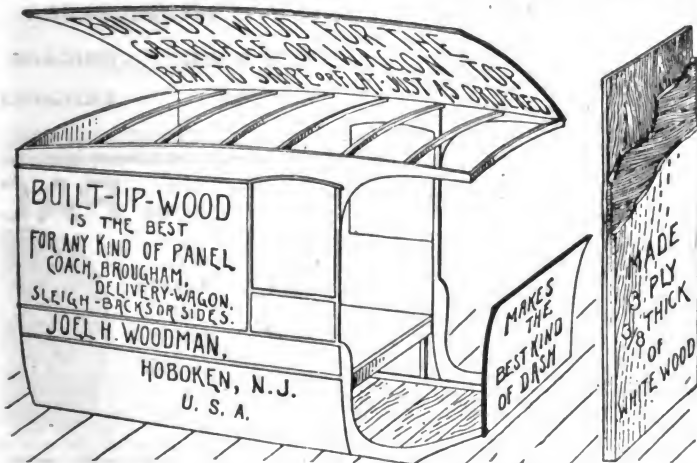 BUILT-UP WOOD FOR THE
CARRIAGE OR WAGON TOP
BENT TO SHAPE OR FLAT JUST AS ORDERED
BUILT-UP-WOOD
IS THE BEST
FOR ANY KIND OF PANEL
COACH, BROUGHAM,
DELIVERY-WAGON.
SLEIGH-BACKS OR SIDES.
JOEL H. WOODMAN,
HOBOKEN, N.J.
U. S. A.
MAKES
THE
BEST KIND
OF DASH
MADE
3 PLY
3/8 THICK
OF
WHITE WOOD